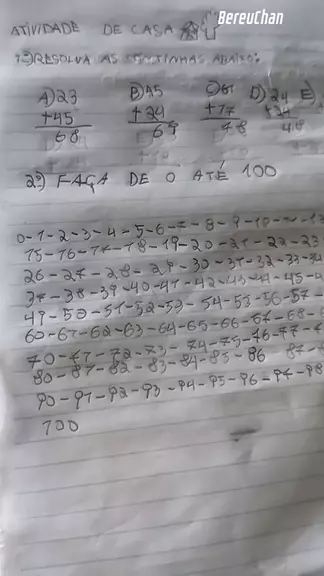 BereuChan
ATIVIDADE DE CASA
1º) RESOLVA AS CONTINHAS ABAIXO:
A) 23 B) 45 C) 61 D) 24 E)
+45 +24 +17 +24
68 69 48 48
2º) FAÇA DE 0 ATÉ 100
0-1-2-3-4-5-6-7-8-9-10-11-12
15-16-17-18-19-20-21-22-23
26-27-28-29-30-31-32-33-34
37-38-39-40-41-42-43-44-45-4
49-50-51-52-53-54-55-56-57-
60-61-62-63-64-65-66-67-68-6
70-71-72-73-74-75-76-77-7
80-81-82-83-84-85-86 87-
90-91-92-93-94-95-96-97-98
100